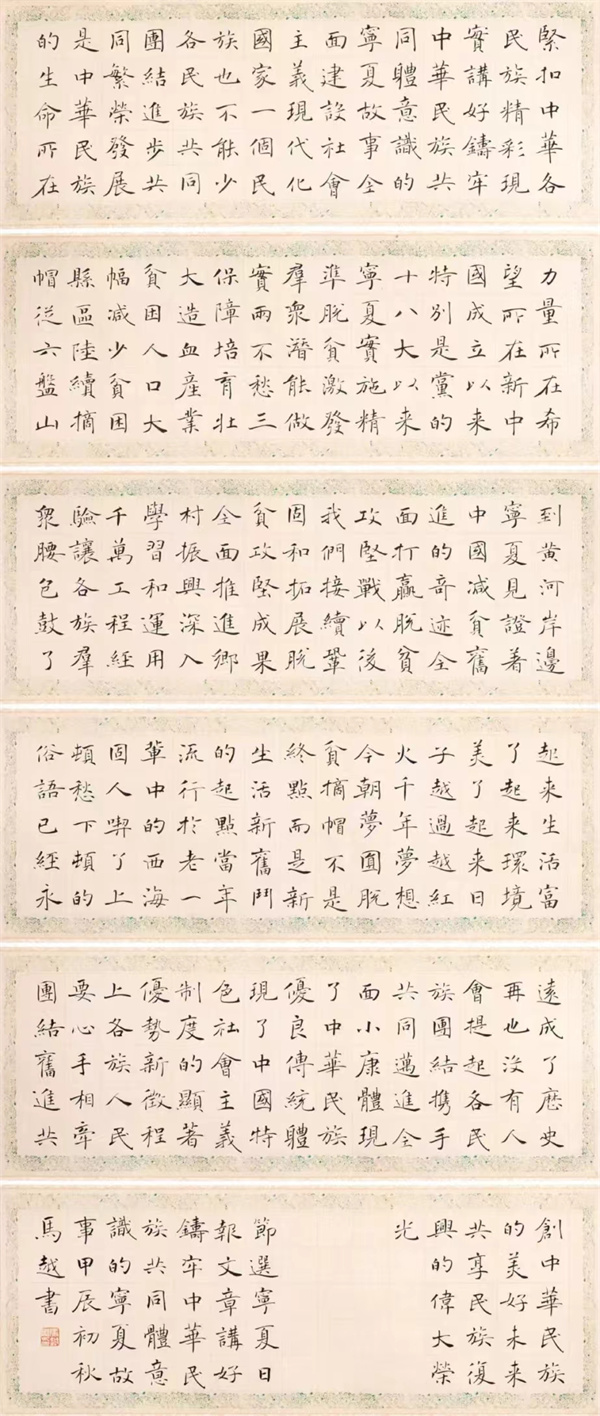 緊扣中華各
民族精彩現
實講好鑄牢
中華民族共
同體意識的
寧夏故事全
面建設社會
主義現代化
國家一個民
族也不能少
各民族共同
團結進步共
同繁榮發展
是中華民族
的生命所在
力量所在希
望所在新中
國成立以來
特别是黨的
十八大以來
寧夏實施精
準脱貧激發
羣衆潛能做
實兩不愁三
保障培育壯
大造血産業
貧困人口大
幅減少貧困
縣區陸續摘
帽從六盤山
到黄河岸邊
寧夏見證著
中國減貧奮
進的奇迹全
面打贏脱貧
攻堅戰以後
我們接續鞏
固和拓展脱
貧攻堅成果
全面推進鄉
村振興深入
學習和運用
千萬工程經
驗讓各族羣
衆腰包鼓了
起來生活富
了起來環境
美了起來日
子越過越紅
火千年夢想
今朝夢圓脱
貧摘帽不是
終點而是新
生活新奮鬥
的起點當年
流行於老一
輩中的西海
固人喫了上
頓愁下頓的
俗語已經永
遠成了歷史
再也没有人
會提起各民
族團結携手
共同邁進全
面小康體現
了中華民族
優良傳統體
現了中國特
色社會主義
制度的顯著
優勢新徵程
上各族人民
要心手相牽
團結奮進共
創中華民族
的美好未來
共享民族復
興的偉大榮
光
節選寧夏日
報文章講好
鑄牢中華民
族共同體意
識的寧夏故
事甲辰初秋
馬越書